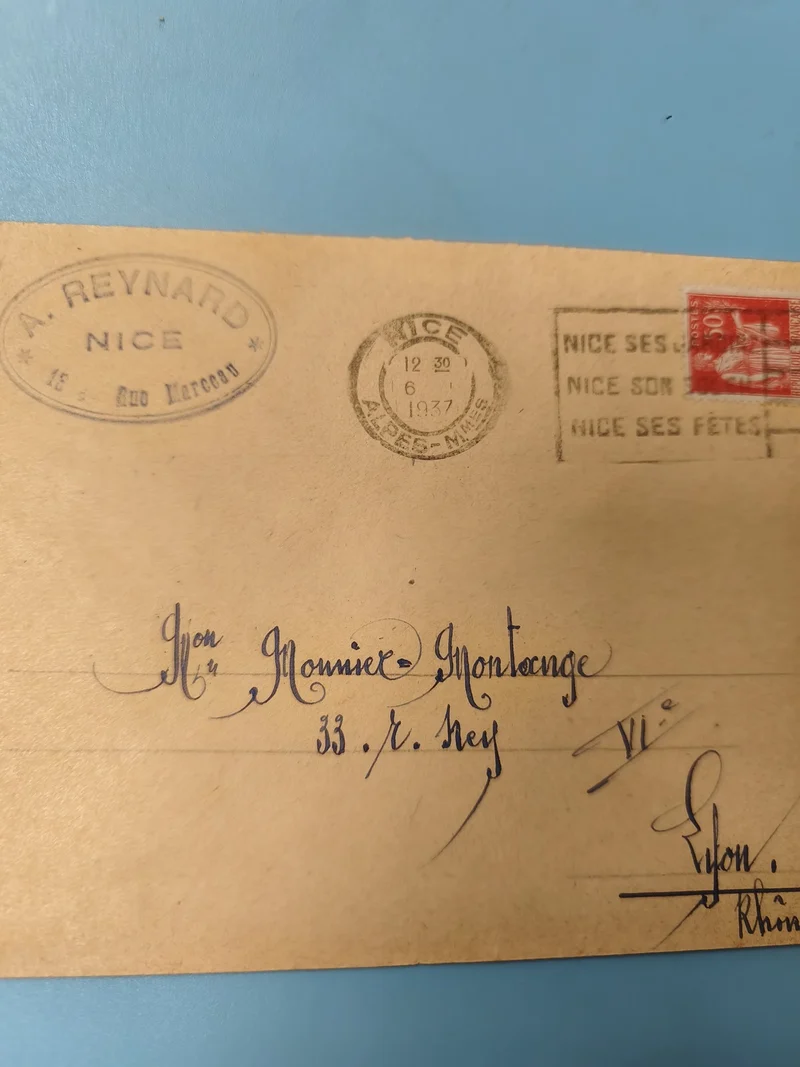 A. REYNARD
NICE
Rue Marceau
NICE
12 30
6
1937
ALPES-MMES
NICE SES
NICE SON
NICE SES FÊTES
POSTES
50
Mon
Monnier-Montange
33. r. Ney
VI.e
Lyon.
Rhôn